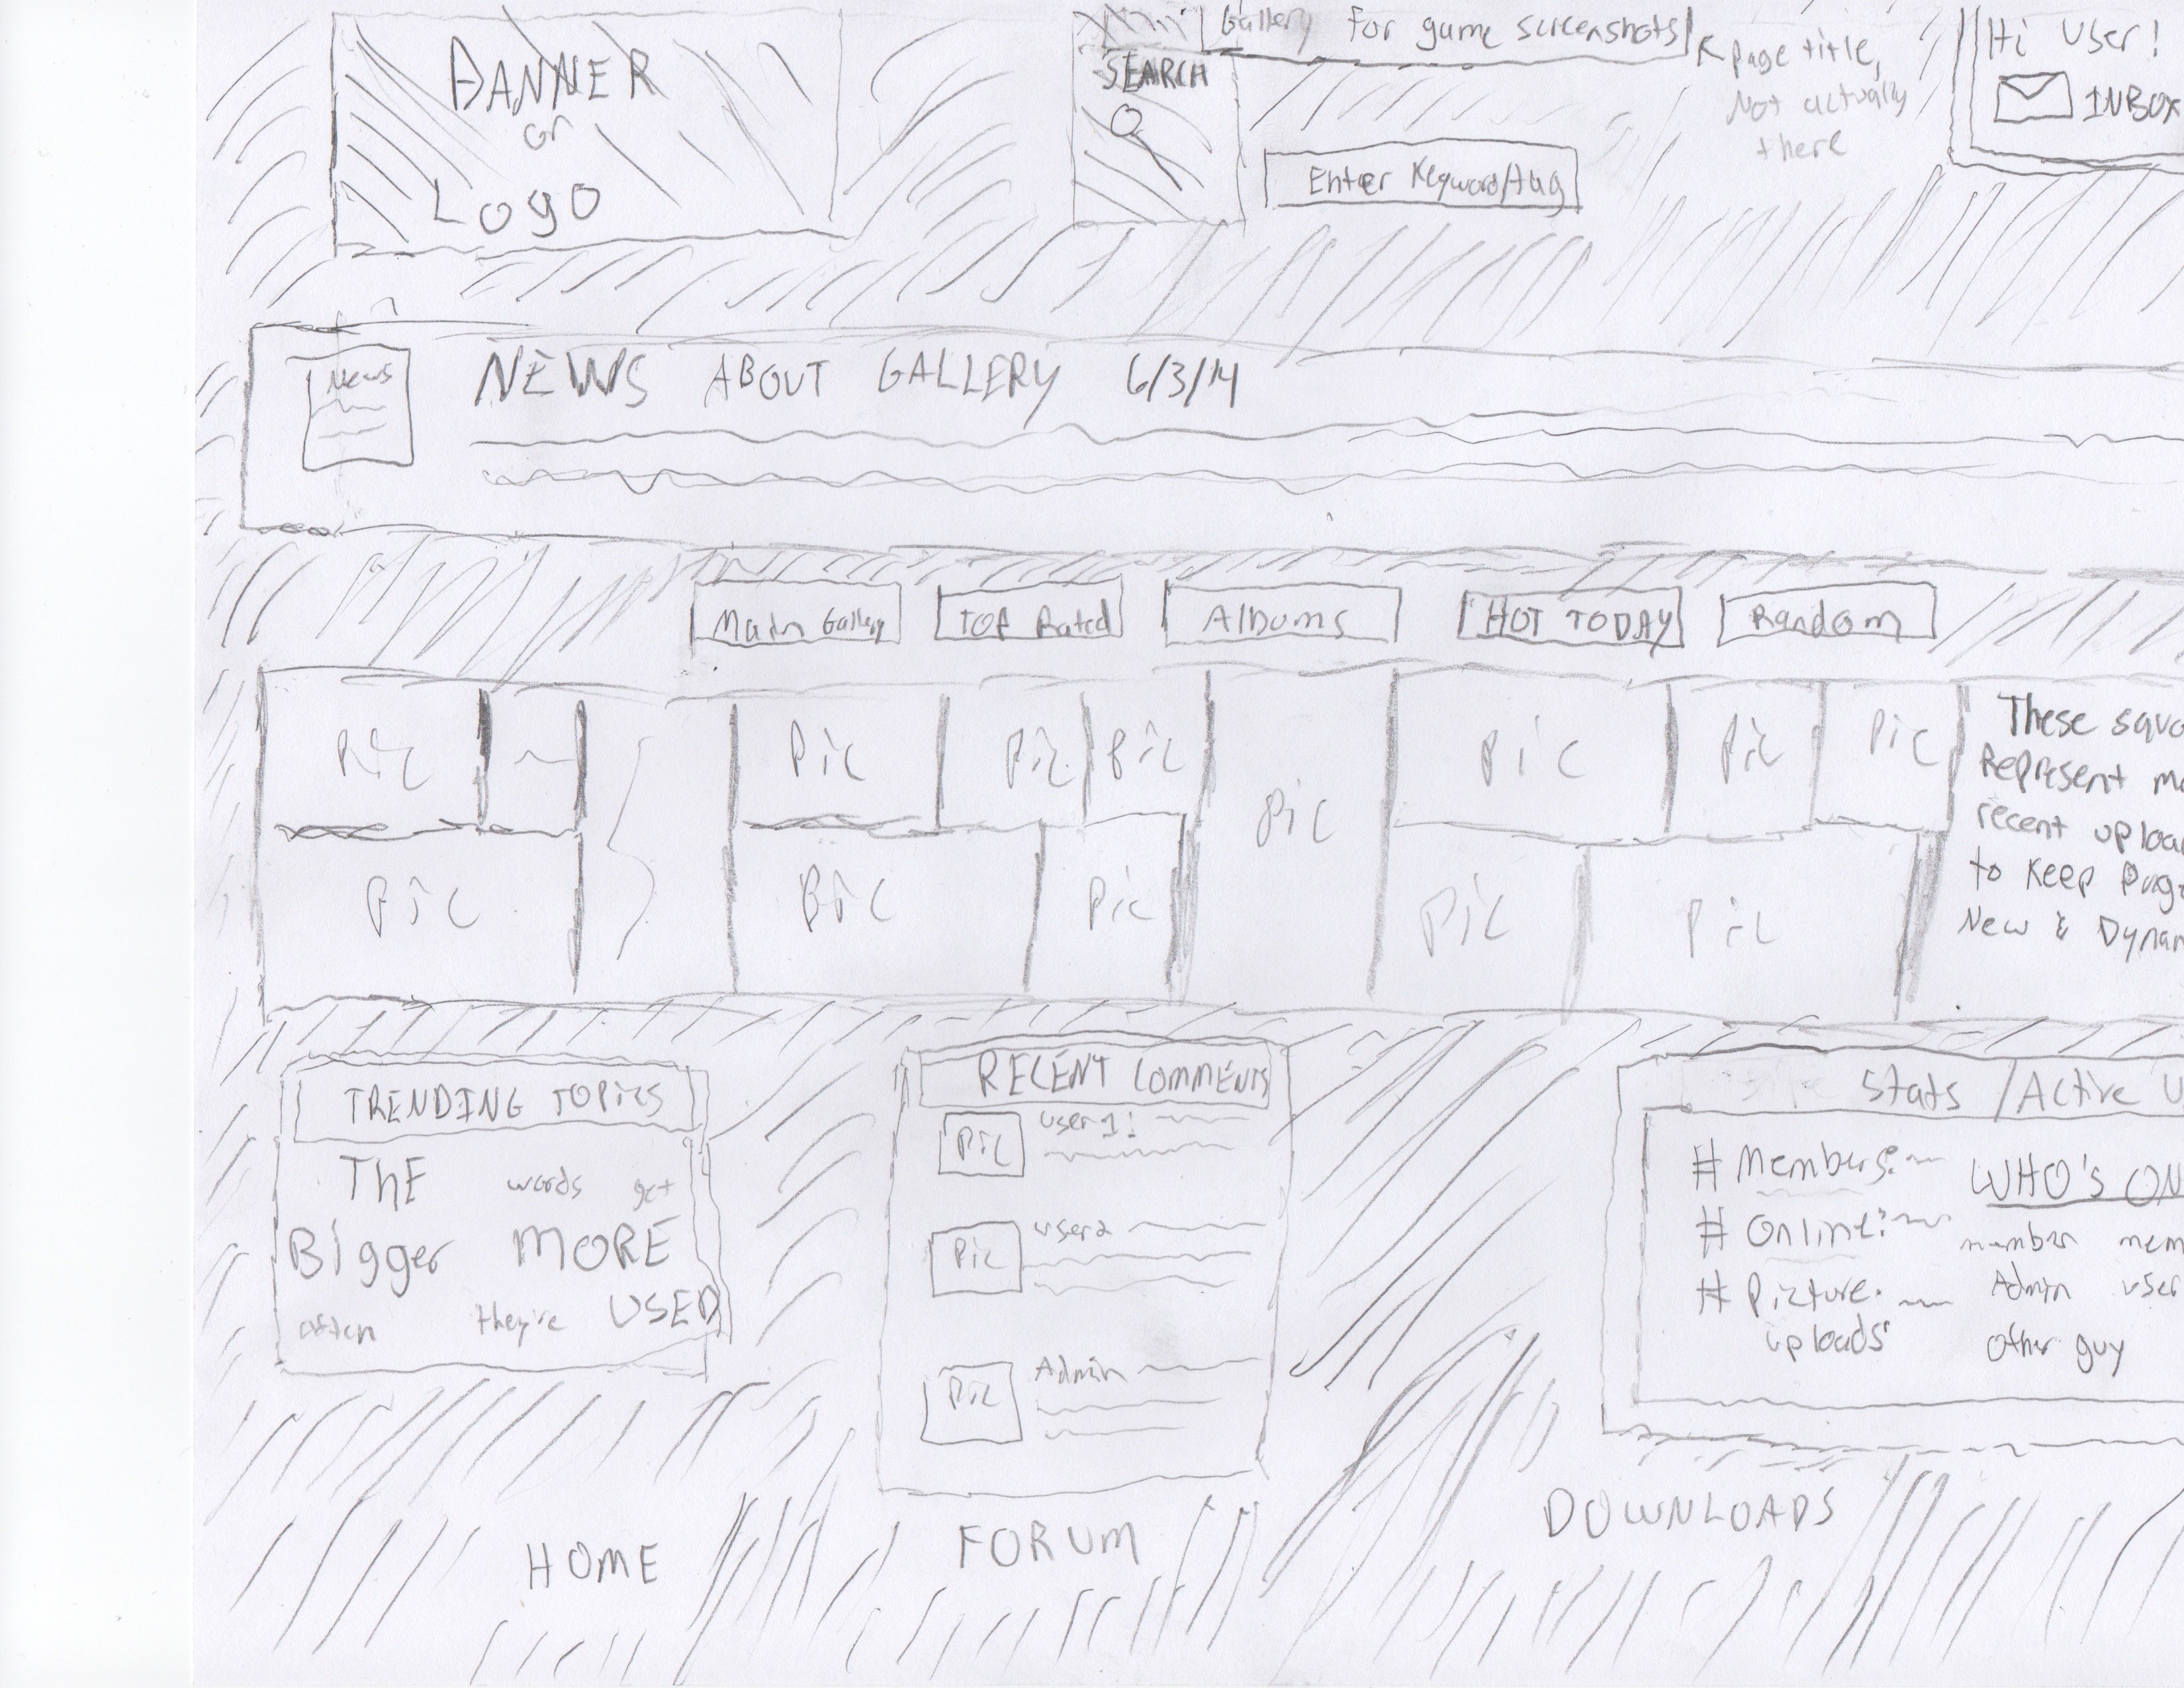 BANNER
or
Logo
Gallery For game screenshots
SEARCH
Enter Keyword/tag
page title,
Not actually
there
Hi User!
INBOX
News
NEWS ABOUT GALLERY 6/3/14
Main Gallery
TOP Rated
Albums
HOT TODAY
Random
Pic
Pic
Pic
Pic
Pic
Pic
Pic
Pic
Pic
Pic
Pic
Pic
Pic
These squa
Represent mo
recent uploa
to Keep page
New & Dynam
TRENDING TOPICS
ThE words get
Bigger MORE
often they're USED
RECENT COMMENTS
Pic
user 1:
Pic
user2
Pic
Admin
Stats / Active U
# Members:
# Online:
# Picture
uploads:
WHO'S ON
member mem
Admin user
other guy
HOME
FORUM
DOWNLOADS